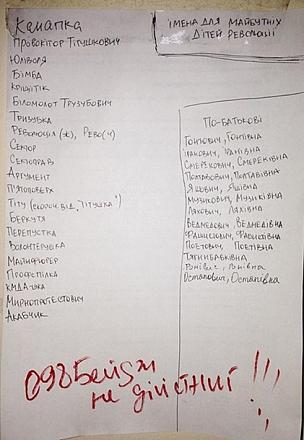 Канапка
Провокітор Тітушкович
Юліволя
Бімба
Біломолот Тризубович
Тризубка
Революція (ж), Рево(ч)
Сектор
Аргумент
Тіту (скороч. від "Тітушка")
Беркутя
Перепустка
Волонтерушка
Майнуфюрер
Профспілка
КМДА-шка
Мирнопротестович
Акабчик
Імена для майбутніх
дітей революції
По-батькові
Гонтович, Гонтівна
Ірпанович, Ірпанівна
Смерекович, Смереківна
Полтавович, Полтавівна
Яшович, Яшівна
Музикович, Музиківна
Ляхович, Ляхівна
Ведмедович, Ведмедівна
Фашистович, Фашистівна
Поетович, Поетівна
Тягнибаківна
Внівич, Внівна
Остапович, Остапівна
098Бейдж
не дійстний!!!